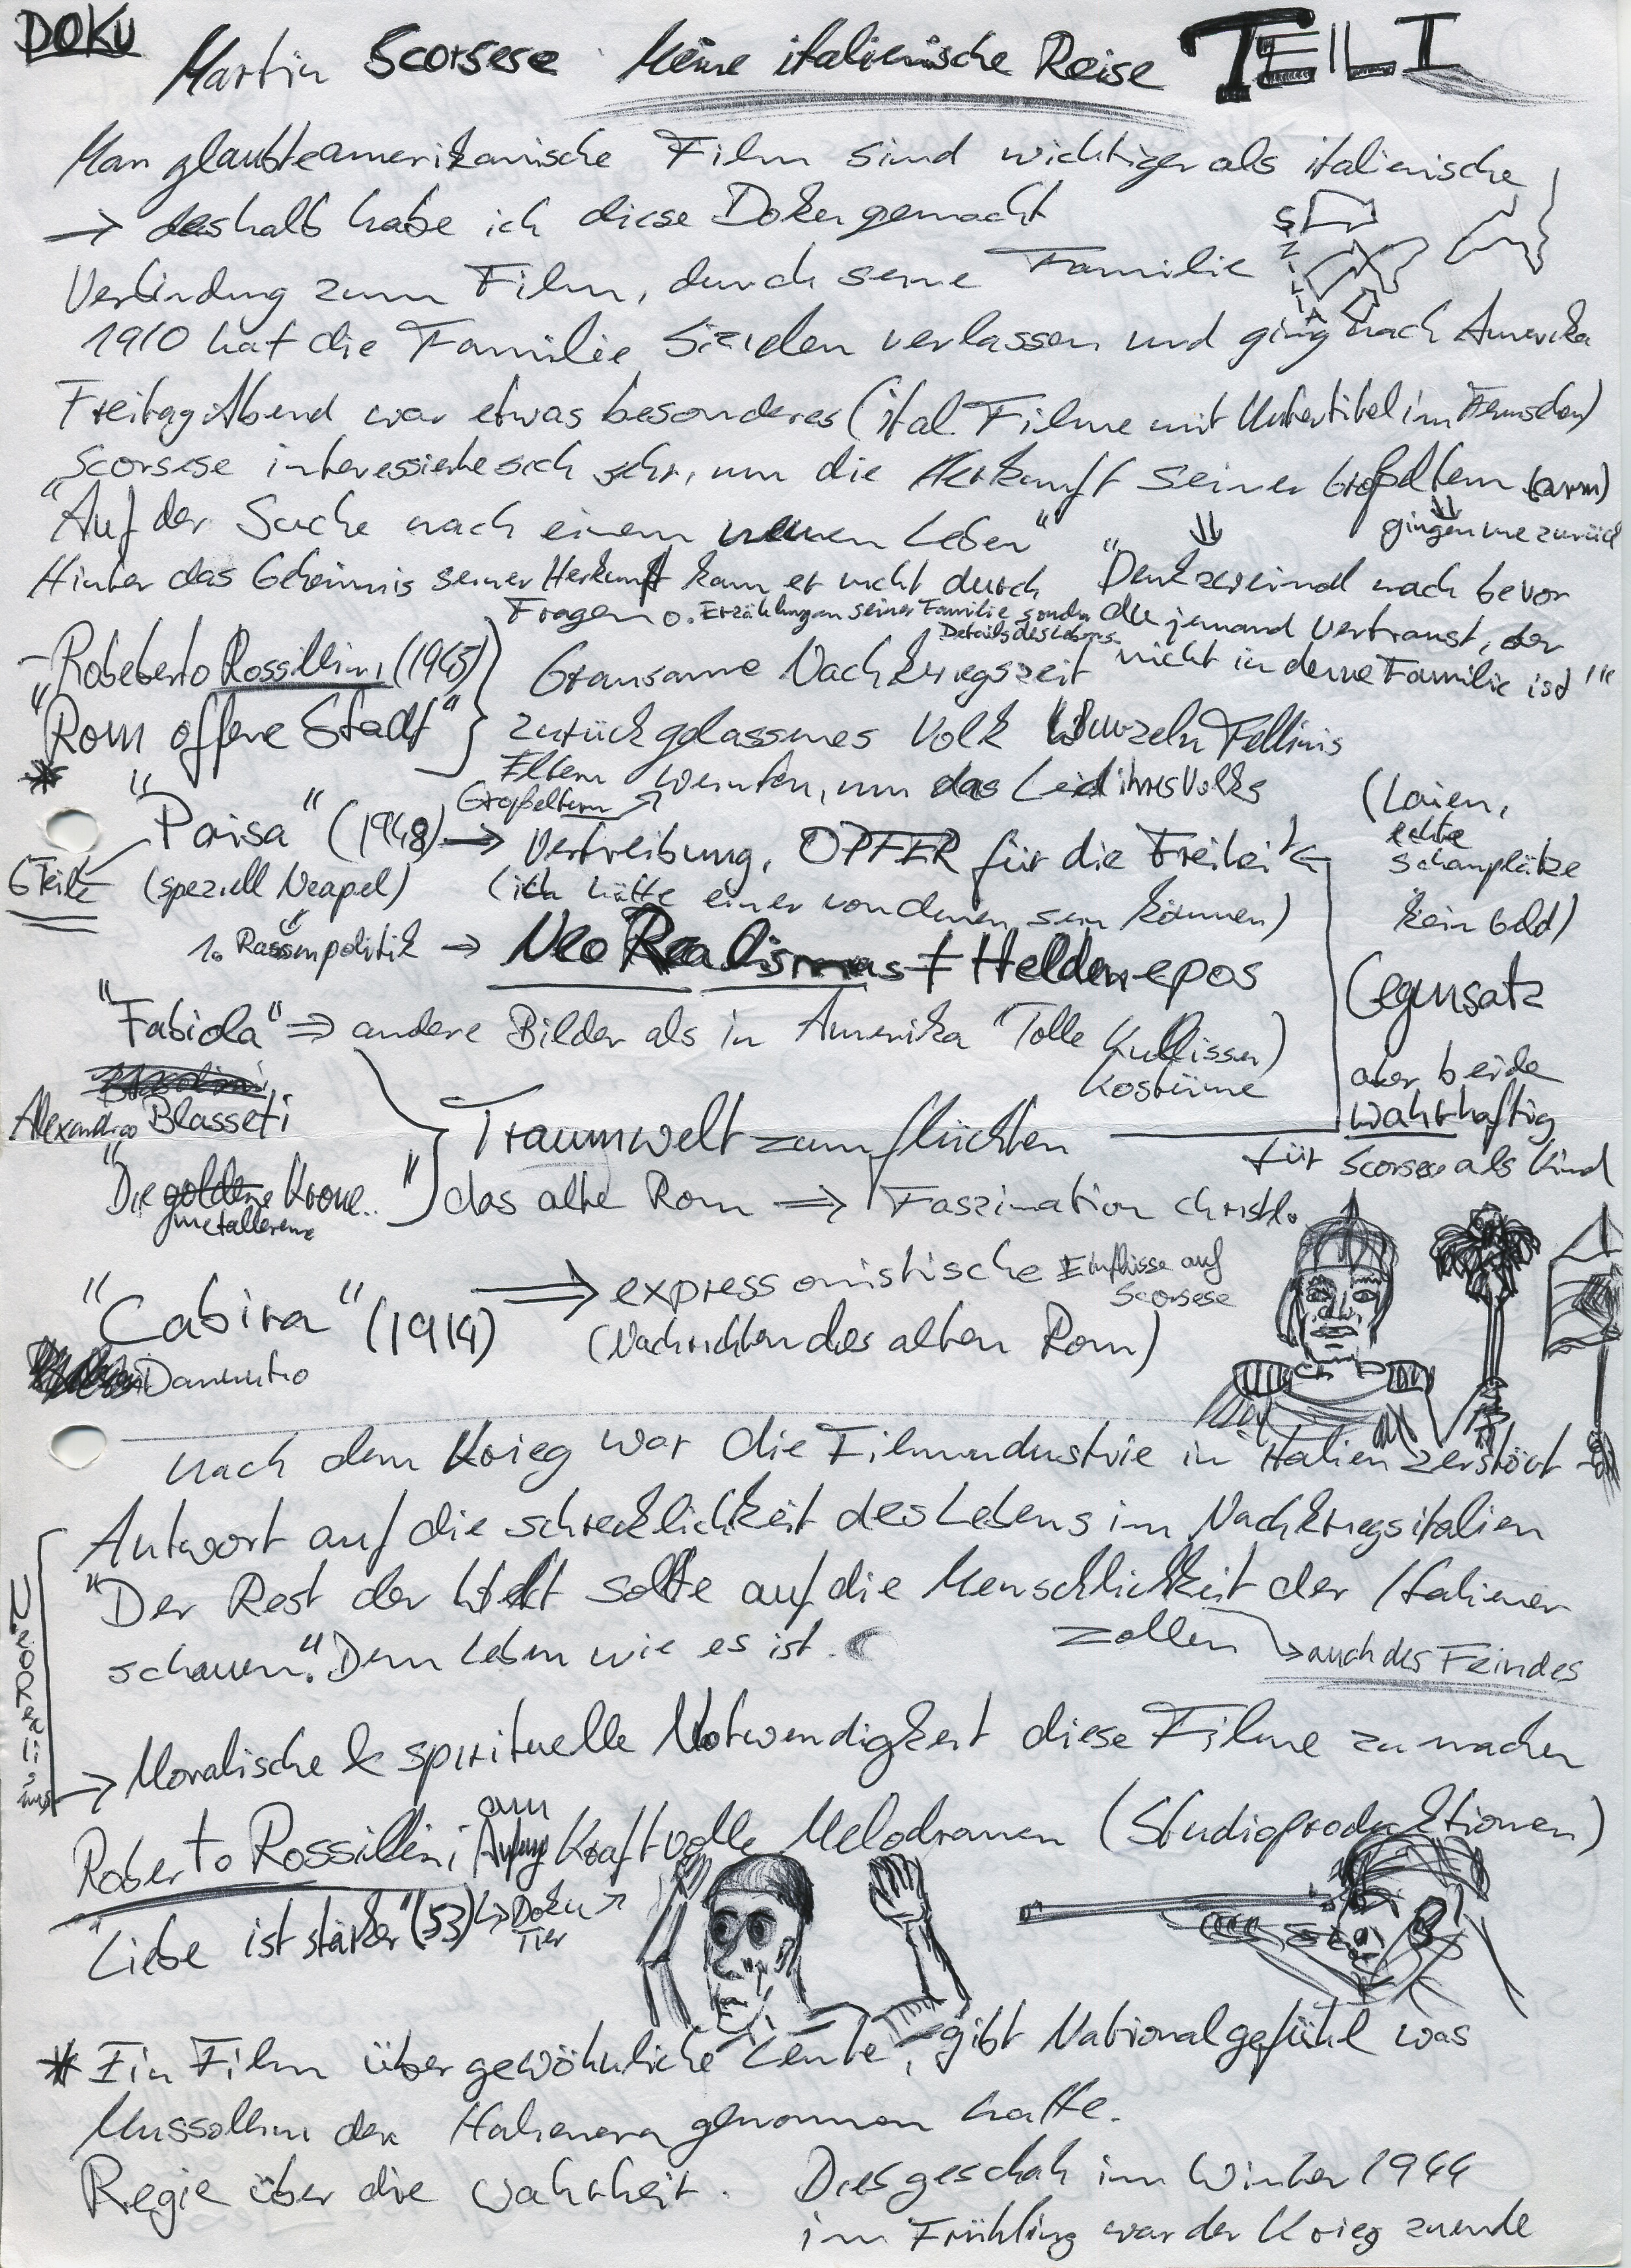 DOKU
Martin Scorsese Meine italienische Reise TEIL I
Man glaubte amerikanische Film sind wichtiger als italienische
→ deshalb habe ich diese Doku gemacht
Verbindung zum Film, durch seine Familie
1910 hat die Familie Sizilien verlassen und ging nach Amerika
Freitag Abend war etwas besonderes (ital. Filme mit Untertitel im Fernsehen)
Scorsese interessierte sich sehr, um die Herkunft seiner Großeltern (arm)
⇓ gingen nie zurück
"Auf der Suche nach einem neuen Leben"
Hinter das Geheimnis seiner Herkunft kam er nicht durch
Fragen o. Erzählungen seiner Familie, sondern
Details des Lebens
⇓
"Denk zweimal nach bevor
du jemand vertraust, der
nicht in deine Familie ist"
- Robeberto Rossillini (1945)
"Rom offene Stadt"
*
Grausame Nachkriegszeit
zurückgelassenes Volk Wurzeln Fellinis
Eltern
Großeltern
weinten, um das Leid ihres Volks
"Paisa" (1948) → Vertreibung, OPFER für die Freiheit
6 Teile
(speziell Neapel)
(ich hätte einer von denen sein können)
(Laien,
echte
Schauplätze
kein Geld)
1. Rassenpolitik → Neo Realismus ≠ Heldenepos
Gegensatz
aber beide
wahrhaftig
für Scorsese als Kind
"Fabiola" ⇒ andere Bilder als in Amerika (Tolle Kullissen)
Kostüme
Alexandro Blasseti
Traumwelt zum flüchten
"Die goldene Krone.."
metallerene
das alte Rom ⇒ Faszination christl.
"Cabira" (1914) ⇒ expressionistische Einflüsse auf
Scorsese
(Nachrichten des alten Rom)
Danuntio
nach dem Krieg war die Filmindustrie in Italien zerstört
Antwort auf die schrecklichkeit des Lebens im Nachkriegsitalien
"Der Rest der Welt sollte auf die Menschlichkeit der Italiener
schauen". Dem Leben wie es ist.
zollen → auch des Feindes
Neorealismus
→ Moralische & spirituelle Notwendigkeit diese Filme zu machen
Roberto Rossillini am
Anfang Kraftvolle Melodramen (Studioproduktionen)
"Liebe ist stärker" (53) ↳ Doku
Tier
* Ein Film über gewöhnliche Leute, gibt Nationalgefühl was
Mussollini den Italienern genommen hatte.
Regie über die Wahrheit. Dies geschah im Winter 1944
im Frühling war der Krieg zuende